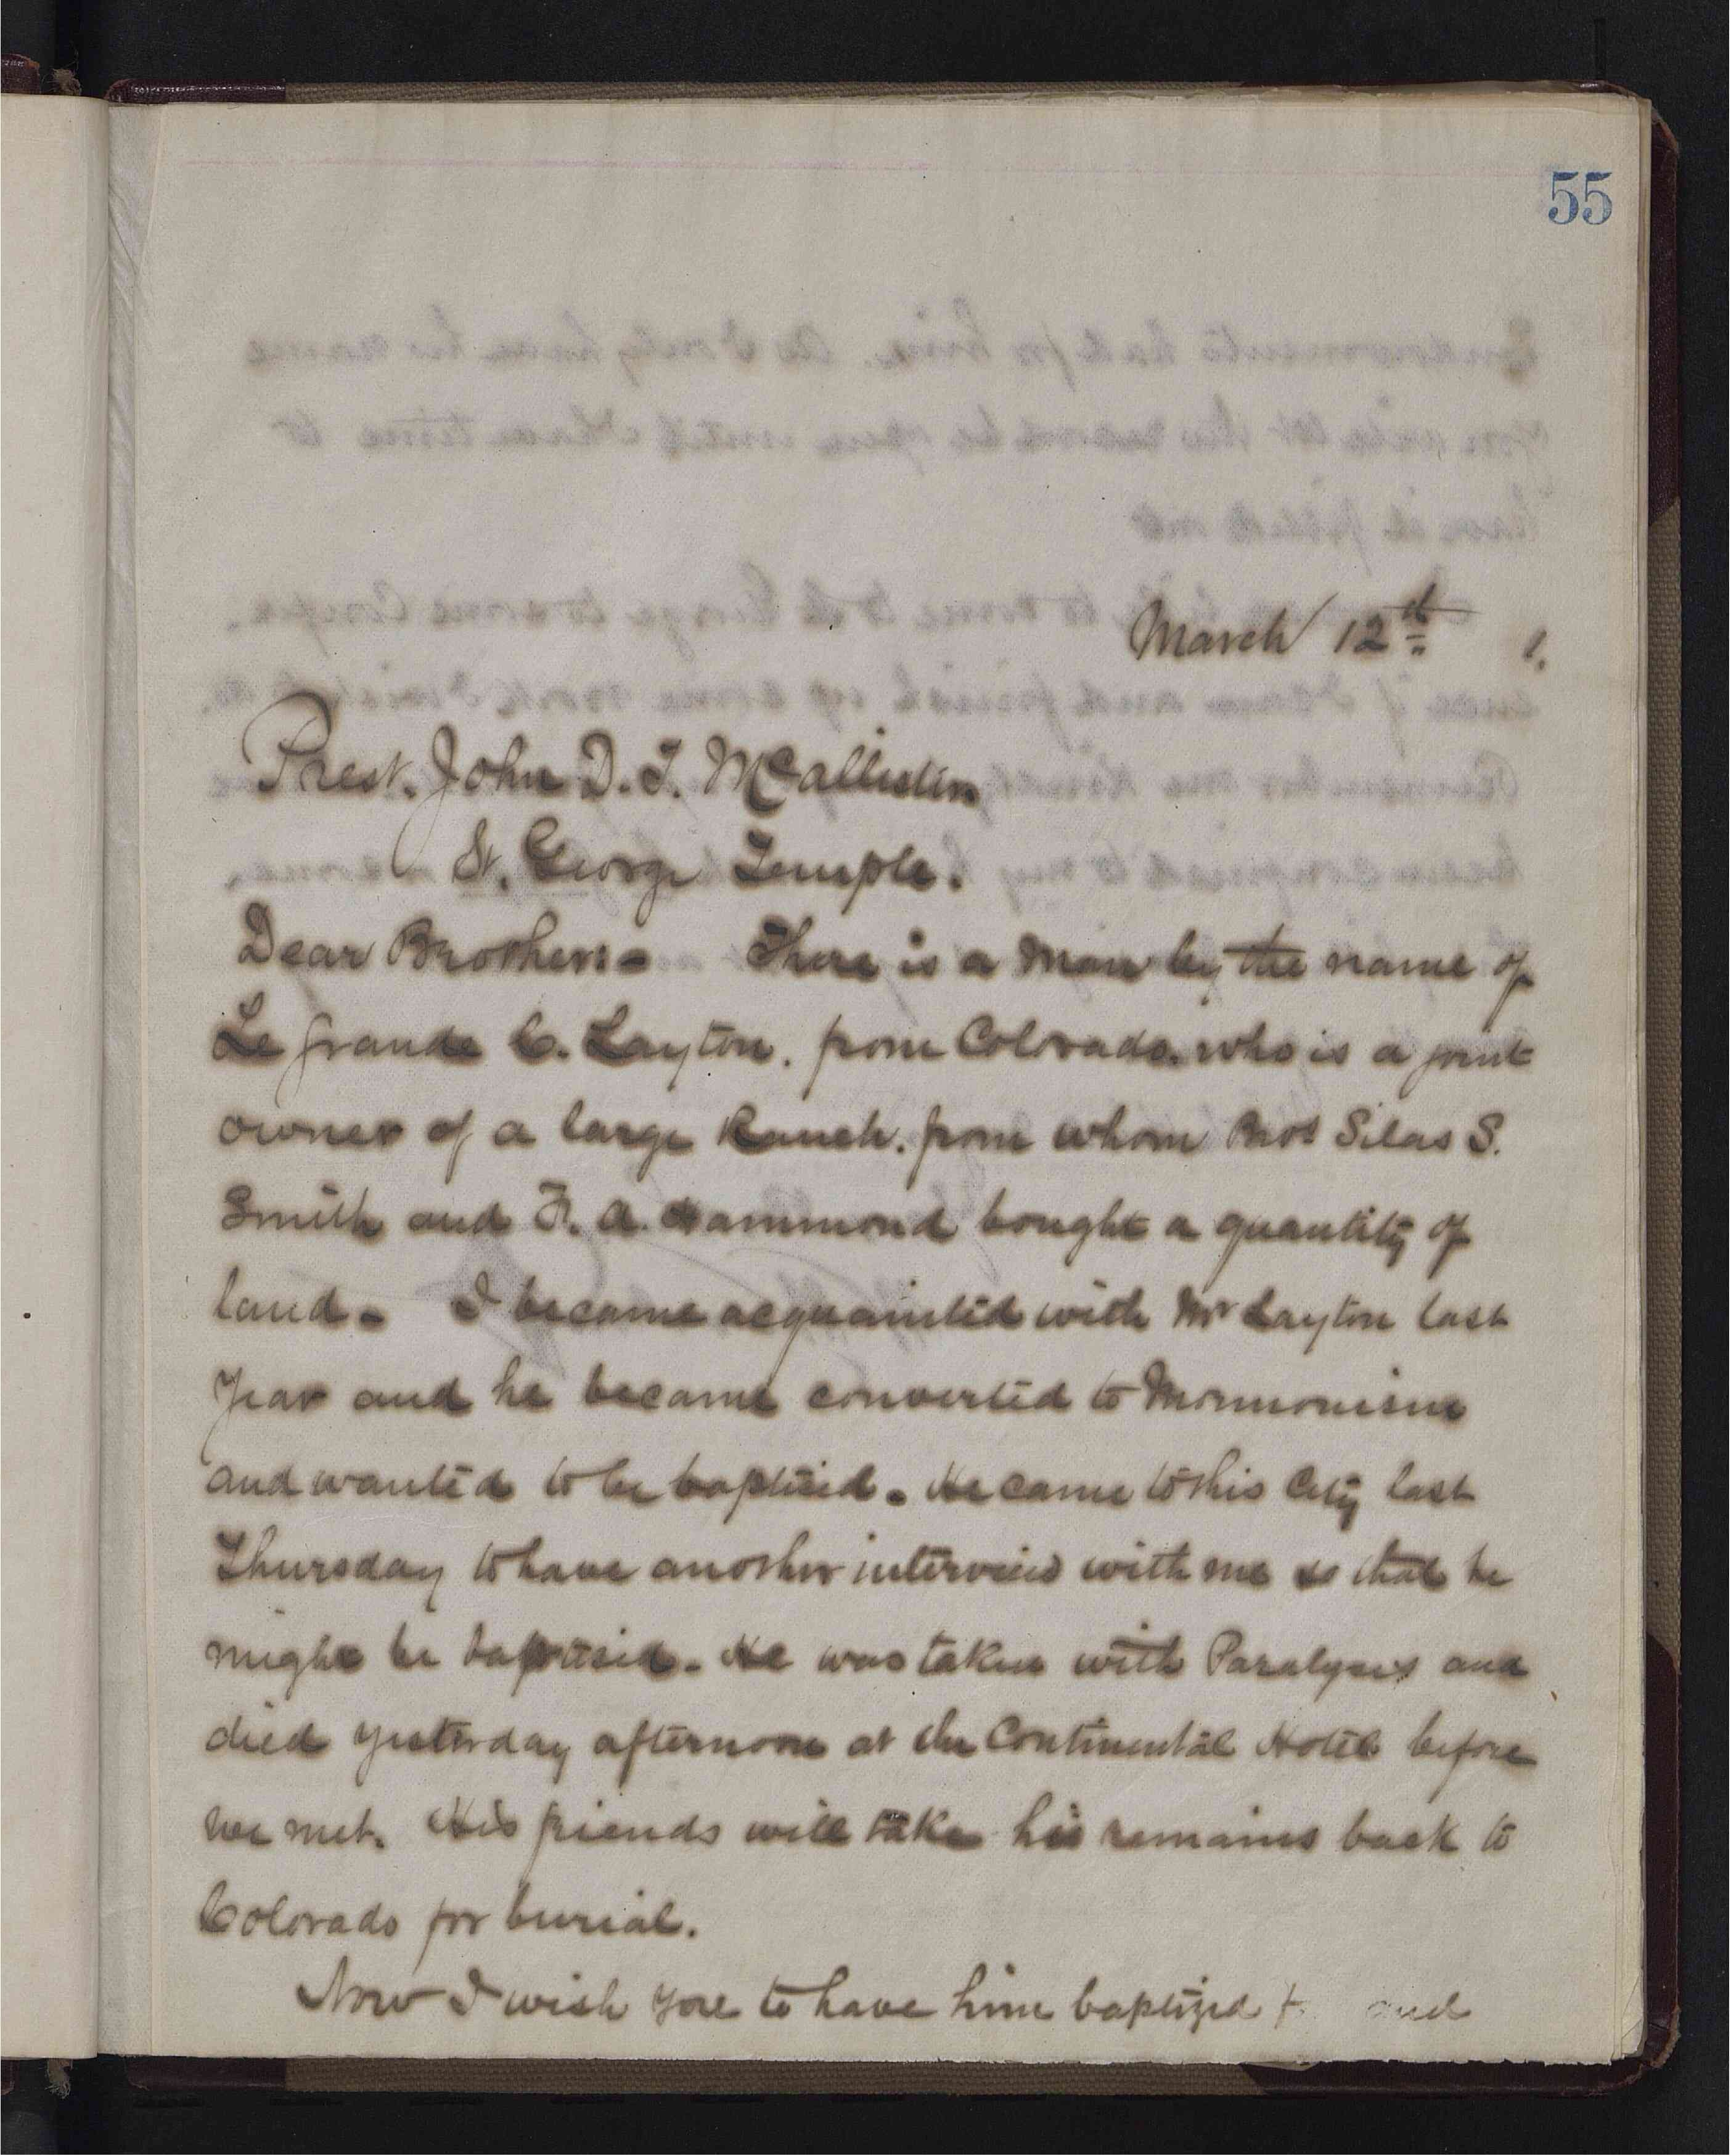 55
March 12th 1.
Prest. John D. T. McAllister
St. George Temple.
Dear Brother:- There is a man by the name of
Le Grande C. Layton. from Colorado. who is a joint
owner of a large Ranch. from whom Bros Silas S.
Smith and F. A. Hammond bought a quantity of
land - I became acquainted with Mr Layton last
Year and he became converted to Mormonism
and wanted to be baptised. He came to this City last
Thursday to have another interview with me so that he
might be baptised. He was taken with Paralysis and
died yesterday afternoon at the Continental Hotel before
we met. His friends will take his remains back to
Colorado for burial.
Now I wish you to have him baptized and